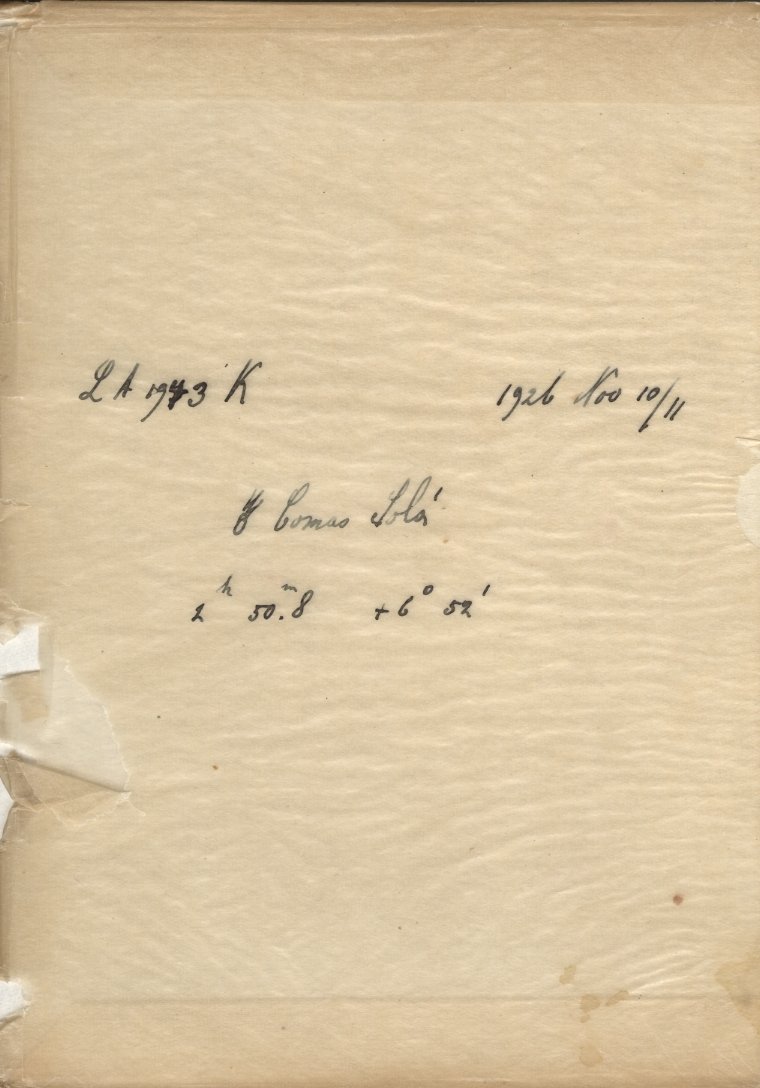 LA 1943 K 1926 Nov 10/11
☄ Comas Solá
2ʰ 50ᵐ.8 +6° 52'